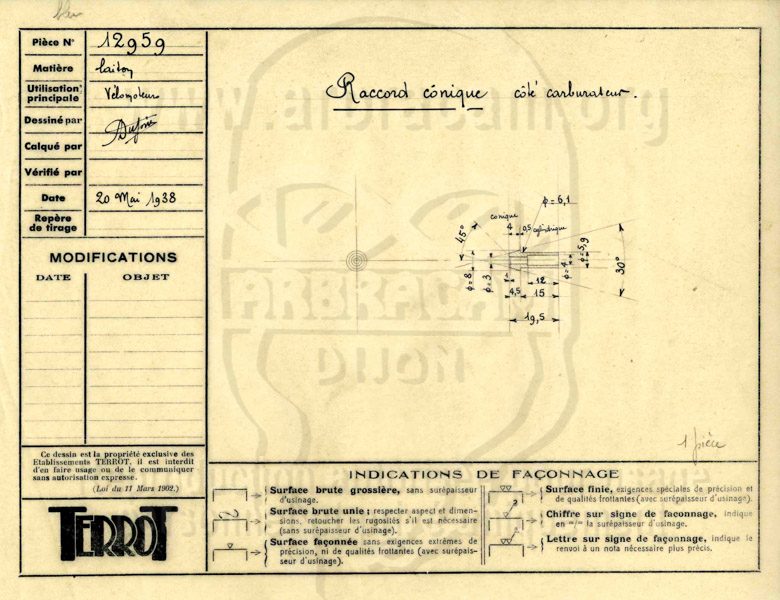 bleu
Pièce N° 12959
Matière laiton
Utilisation principale Vélomoteur
Dessiné par Dufour
Calqué par
Vérifié par
Date 20 Mai 1938
Repère de tirage
MODIFICATIONS
DATE OBJET
Ce dessin est la propriété exclusive des
Etablissements TERROT, il est interdit
d'en faire usage ou de le communiquer
sans autorisation expresse.
(Loi du 11 Mars 1902.)
TERROT
Raccord cônique côté carburateur.
www.arbracam.org
ϕ=6,1
conique
4 0,5 cylindrique
45°
ϕ=8
ϕ=3
ϕ=4
ϕ=5,9
30°
1 12
4,5 15
19,5
ARBRACAM
DIJON
1 pièce
INDICATIONS DE FAÇONNAGE
Surface brute grossière, sans surépaisseur
d'usinage.
Surface brute unie; respecter aspect et dimen-
sions, retoucher les rugosités s'il est nécessaire
(sans surépaisseur d'usinage).
Surface façonnée sans exigences extrêmes de
précision, ni de qualités frottantes (avec surépais-
seur d'usinage).
Surface finie, exigences spéciales de précision et
de qualités frottantes (avec surépaisseur d'usinage).
Chiffre sur signe de faconnage, indique
en m/m la surépaisseur d'usinage.
Lettre sur signe de façonnage, indique le
renvoi à un nota nécessaire plus précis.